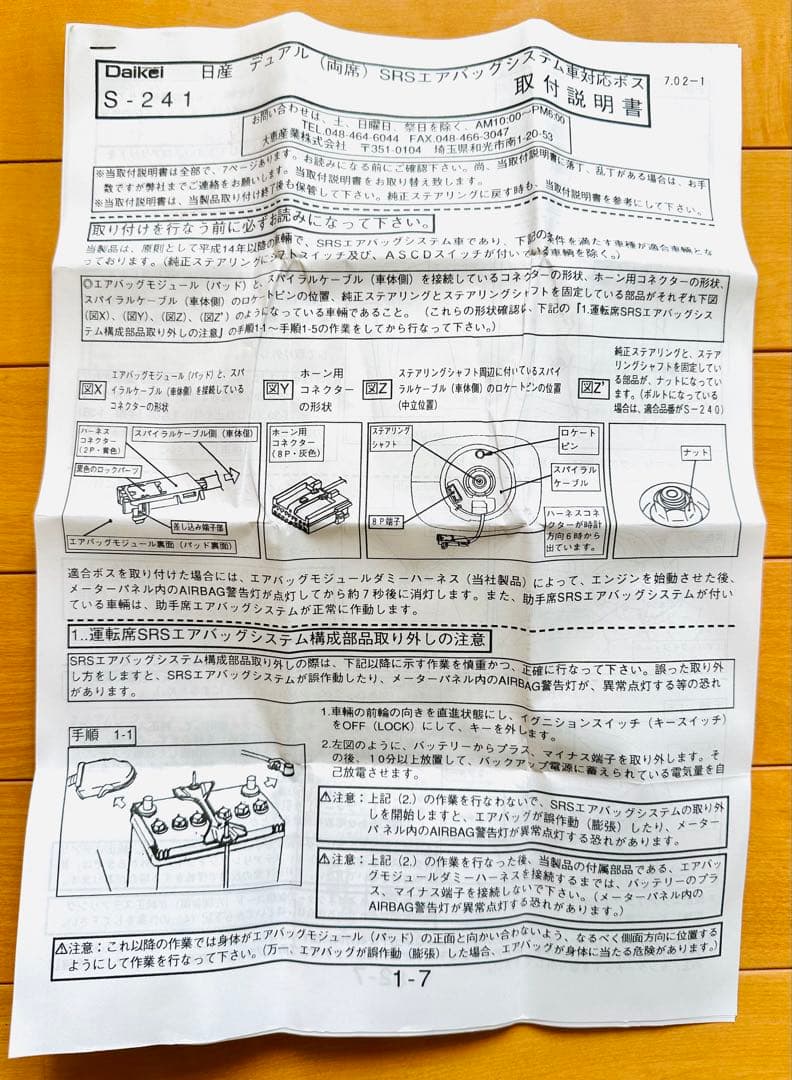 Daikei 日産 デュアル（両席）SRSエアバッグシステム車対応ボス
7.02-1
S-241 取付説明書
お問い合わせは、土、日曜日、祭日を除く、AM10:00～PM6:00
TEL.048-464-6044 FAX.048-466-3047
大恵産業株式会社 〒351-0104 埼玉県和光市南1-20-53
※当取付説明書は全部で、7ページあります。お読みになる前にご確認下さい。尚、当取付説明書に落丁、乱丁がある場合は、お手
数ですが弊社までご連絡をお願いします。当取付説明書をお取り替え致します。
※当取付説明書は、当製品取り付け終了後も保管して下さい。純正ステアリングに戻す時も、当取付説明書を参考にして下さい。
取り付けを行なう前に必ずお読みになって下さい。
当製品は、原則として平成14年以降の車輛で、SRSエアバッグシステム車であり、下記の条件を満たす車種が適合車輛とな
っております。（純正ステアリングにシフトスイッチ及び、ASCDスイッチが付いている車輛を除く。）
◎エアバッグモジュール（パッド）と、スパイラルケーブル（車体側）を接続しているコネクターの形状、ホーン用コネクターの形状、
スパイラルケーブル（車体側）のロケートピンの位置、純正ステアリングとステアリングシャフトを固定している部品がそれぞれ下図
（図X）、（図Y）、（図Z）、（図Z'）のようになっている車輛であること。（これらの形状確認は、下記の『1.運転席SRSエアバッグシス
テム構成部品取り外しの注意』の手順1-1～手順1-5の作業をしてから行なって下さい。）
図X
エアバッグモジュール（パッド）と、スパ
イラルケーブル（車体側）を接続している
コネクターの形状
図Y
ホーン用
コネクター
の形状
図Z
ステアリングシャフト周辺に付いているスパイ
ラルケーブル（車体側）のロケートピンの位置
（中立位置）
図Z'
純正ステアリングと、ステア
リングシャフトを固定してい
る部品が、ナットになってい
ます。（ボルトになっている
場合は、適合品番がS-240）
ハーネス
コネクター
（2P・黄色）
スパイラルケーブル側（車体側）
黒色のロックパーツ
差し込み端子部
エアバッグモジュール裏面（パッド裏面）
ホーン用
コネクター
（8P・灰色）
ステアリング
シャフト
ロケート
ピン
スパイラル
ケーブル
8P端子
ハーネスコネ
クターが時計
方向6時から
出ています。
ナット
適合ボスを取り付けた場合には、エアバッグモジュールダミーハーネス（当社製品）によって、エンジンを始動させた後、
メーターパネル内のAIRBAG警告灯が点灯してから約7秒後に消灯します。また、助手席SRSエアバッグシステムが付い
ている車輛は、助手席エアバッグシステムが正常に作動します。
1..運転席SRSエアバッグシステム構成部品取り外しの注意
SRSエアバッグシステム構成部品取り外しの際は、下記以降に示す作業を慎重かつ、正確に行なって下さい。誤った取り外
し方をしますと、SRSエアバッグシステムが誤作動したり、メーターパネル内のAIRBAG警告灯が、異常点灯する等の恐れ
があります。
手順 1-1
1.車輛の前輪の向きを直進状態にし、イグニションスイッチ（キースイッチ）
をOFF（LOCK）にして、キーを外します。
2.左図のように、バッテリーからプラス、マイナス端子を取り外します。そ
の後、10分以上放置して、バックアップ電源に蓄えられている電気量を自
己放電させます。
⚠注意：上記（2.）の作業を行なわないで、SRSエアバッグシステムの取り外
しを開始しますと、エアバッグが誤作動（膨張）したり、メーター
パネル内のAIRBAG警告灯が異常点灯する恐れがあります。
⚠注意：上記（2.）の作業を行なった後、当製品の付属部品である、エアバッ
グモジュールダミーハーネスを接続するまでは、バッテリーのプラ
ス、マイナス端子を接続しないで下さい。（メーターパネル内の
AIRBAG警告灯が異常点灯する恐れがあります。）
⚠注意：これ以降の作業では身体がエアバッグモジュール（パッド）の正面と向かい合わないよう、なるべく側面方向に位置する
ようにして作業を行なって下さい。（万一、エアバッグが誤作動（膨張）した場合、エアバッグが身体に当たる危険があります。）
1-7